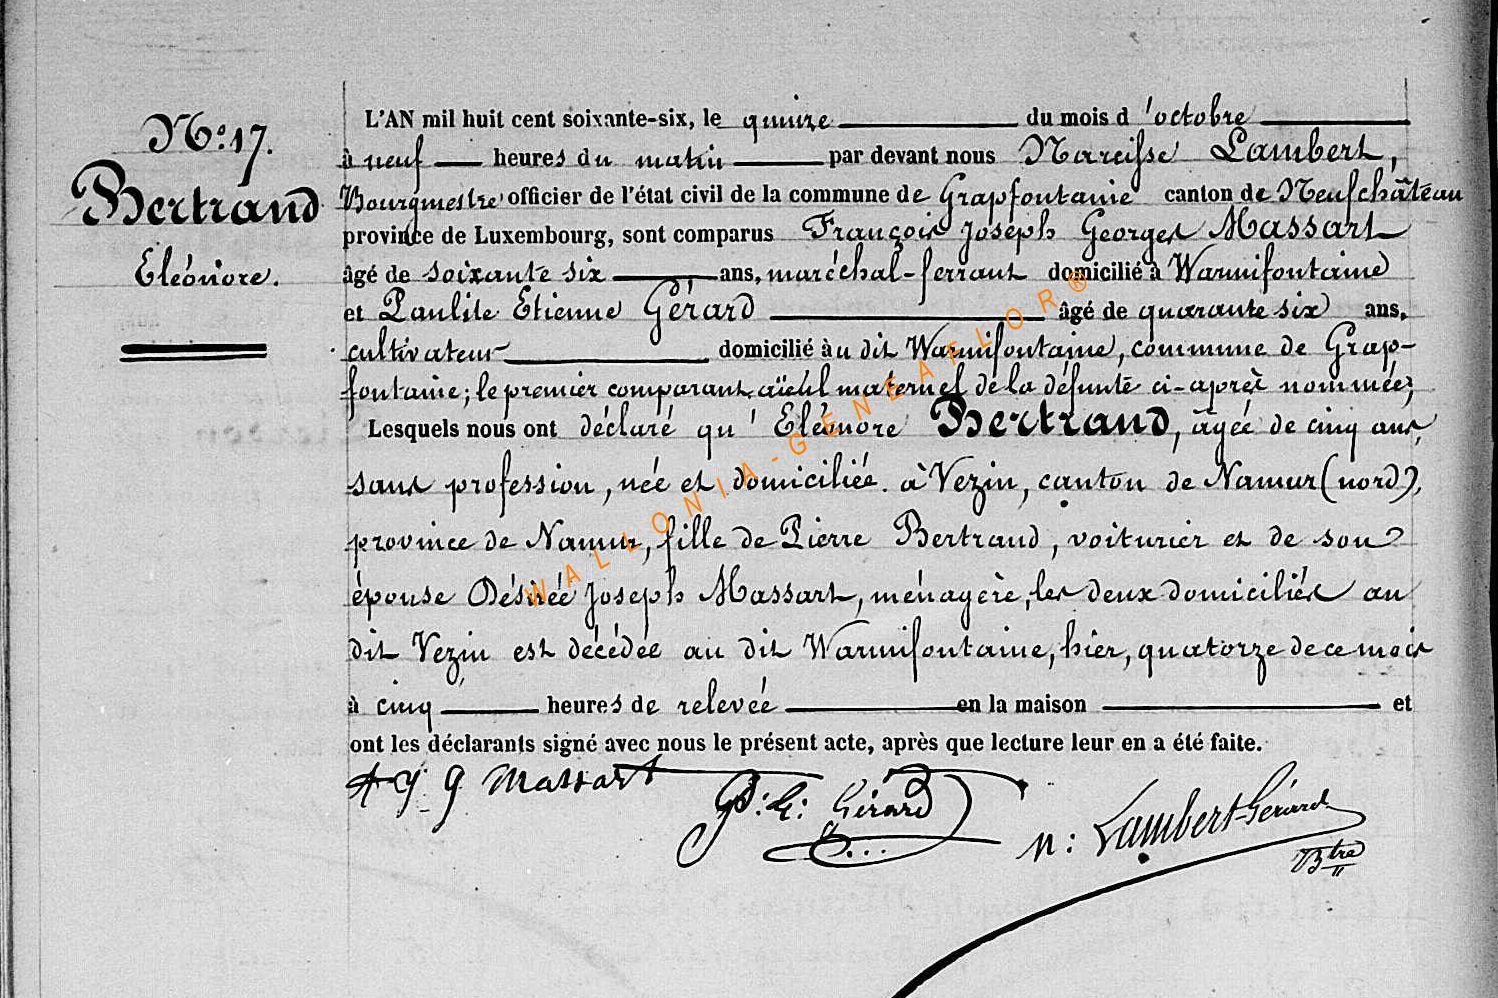 N.º 17.
Bertrand
Eléonore.
L'AN mil huit cent soixante-six, le quinze du mois d'octobre
à neuf heures du matin par devant nous Narcisse Lambert,
Bourgmestre officier de l'état civil de la commune de Grapfontaine canton de Neufchâteau
province de Luxembourg, sont comparus François Joseph Georges Massart
âgé de soixante six ans, maréchal-ferrant domicilié à Warmifontaine
et Paulite Etienne Gérard âgé de quarante six ans,
cultivateur domicilié au dit Warmifontaine, commune de Grap-
fontaine; le premier comparant, aïeul maternel de la défunte ci-après nommée;
Lesquels nous ont déclaré qu'Eléonore Bertrand, âgée de cinq ans,
sans profession, née et domiciliée à Vezin, canton de Namur (nord),
province de Namur, fille de Pierre Bertrand, voiturier et de son
épouse Désirée Joseph Massart, ménagère, les deux domiciliés au
dit Vezin est décédée au dit Warmifontaine, hier, quatorze de ce mois
à cinq heures de relevée en la maison et
ont les déclarants signé avec nous le présent acte, après que lecture leur en a été faite.
J G Massart
P: E: Gérard
N: Lambert-Gérard
Btre
WALLONIA-GENEAFLOR®